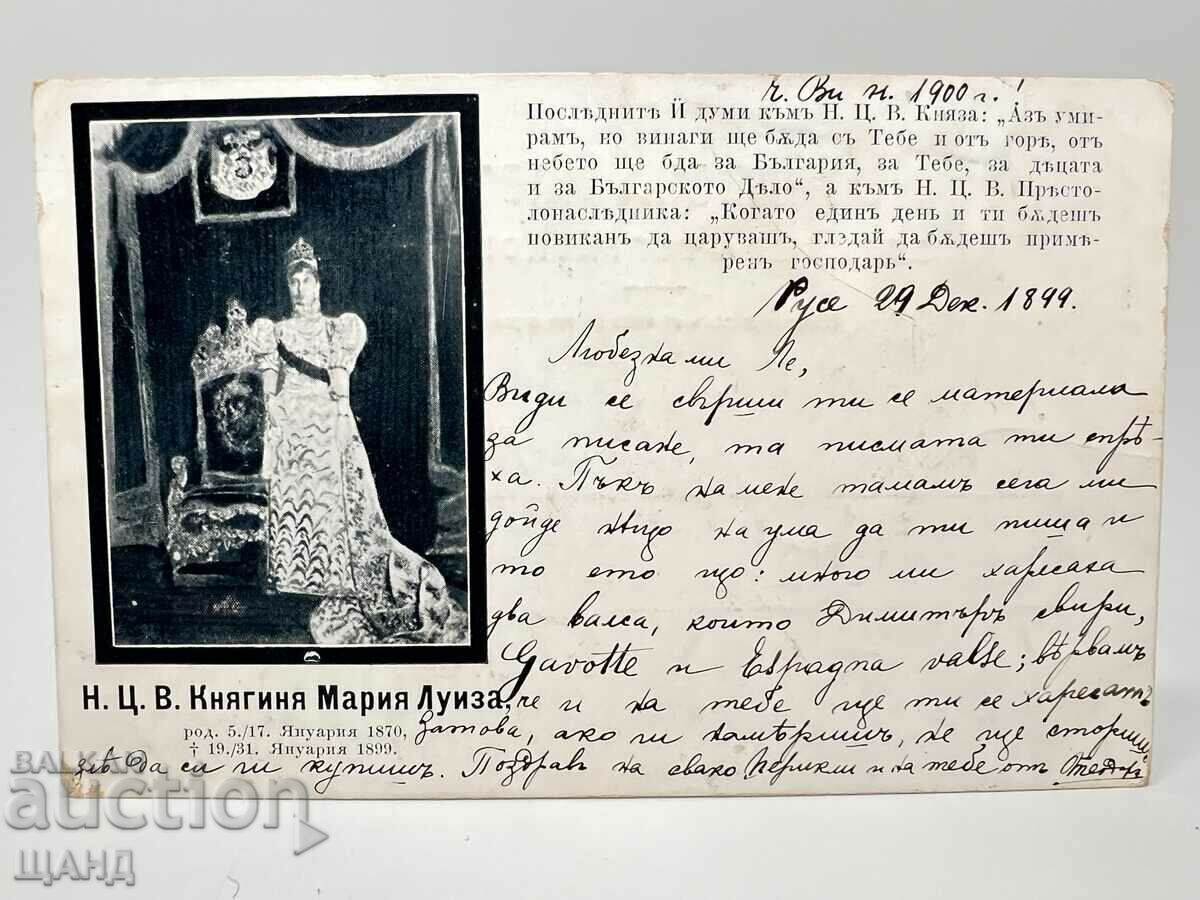 ч. Ви н. 1900 г.!
Послѣднитѣ Ѝ думи къмъ Н. Ц. В. Княза: „Азъ уми-
рамъ, но винаги ще бѫда съ Тебе и отъ горѣ, отъ
небето ще бда за България, за Тебе, за дѣцата
и за Българското Дѣло“, а къмъ Н. Ц. В. Прѣсто-
лонаслѣдника: „Когато единъ день и ти бѫдешъ
повиканъ да царувашъ, гледай да бѫдешъ примѣ-
ренъ господарь“.
Русе 29 Дек. 1899.
Любезна ми Ле,
Види се свърши ти се материала
за писане, та писмата ти спрѣ-
ха. Пъкъ на мене тамамъ сега ми
дойде нѣщо на ума да ти пиша и
то ето що: много ми харесаха
два валса, които Димитъръ свири,
Gavotte и Espagna valse; вѣрвамъ
че и на тебе ще ти се харесатъ.
Затова, ако ги намѣришъ, не ще сторишъ
злѣ да си ги купишъ. Поздрав на свако и на тебе отъ
Н. Ц. В. Княгиня Мария Луиза,
род. 5./17. Януария 1870,
† 19./31. Януария 1899.
BALKAN
auction
ЩАНД